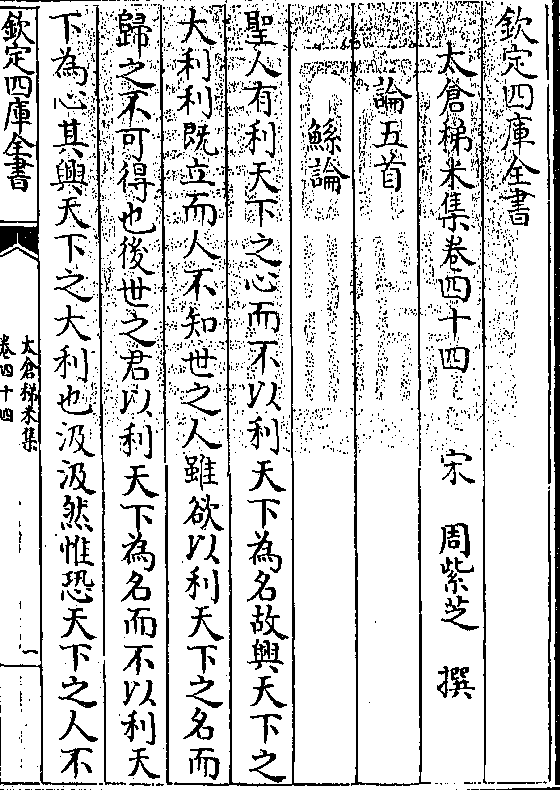 欽定四庫全書
太倉稊米集卷四十四　宋　周紫芝　撰
論五首
鯀論
聖人有利天下之心而不以利天下為名故興天下之
大利利既立而人不知世之人雖欲以利天下之名而
歸之不可得也後世之君以利天下為名而不以利天
下為心其興天下之大利也汲汲然惟恐天下之人不
欽定四庫全書
太倉稊米集
卷四十四
一